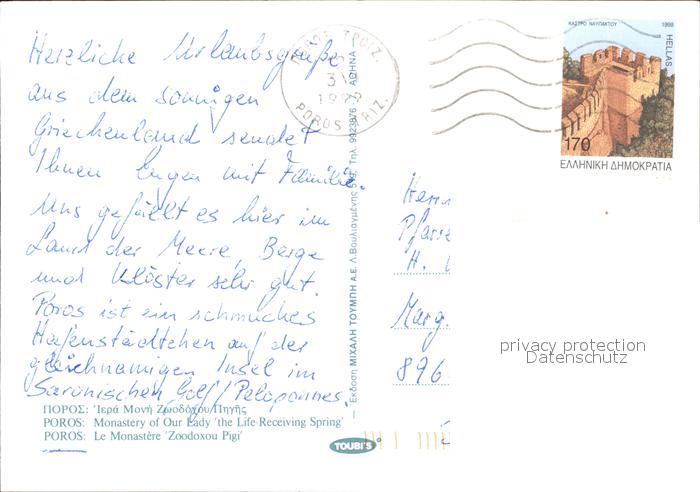 Herzliche Urlaubsgrüße
aus dem sonnigen
Griechenland sendet
Ihnen Eugen mit Familie.
Uns gefällt es hier im
Land der Meere, Berge
und Klöster sehr gut.
Poros ist ein schmuckes
Hafenstädtchen auf der
gleichnamigen Insel im
Saronischen Golf/Peloponnes.
ΠΟΡΟΣ: Ἱερά Μονή Ζωοδόχου Πηγῆς
POROS: Monastery of Our Lady 'the Life-Receiving Spring'
POROS: Le Monastère 'Zoodoxou Pigi'
Έκδοση ΜΙΧΑΛΗ ΤΟΥΜΠΗ Α.Ε. Λ.Βουλιαγμένης 519, Τηλ. 9923876-7 ΑΘΗΝΑ
TOUBI'S
POROS TROIZ.
ΚΑΣΤΡΟ ΝΑΥΠΑΚΤΟΥ 1998
HELLAS
170
ΕΛΛΗΝΙΚΗ ΔΗΜΟΚΡΑΤΙΑ
Herrn
H.
Marg.
896
privacy protection
Datenschutz